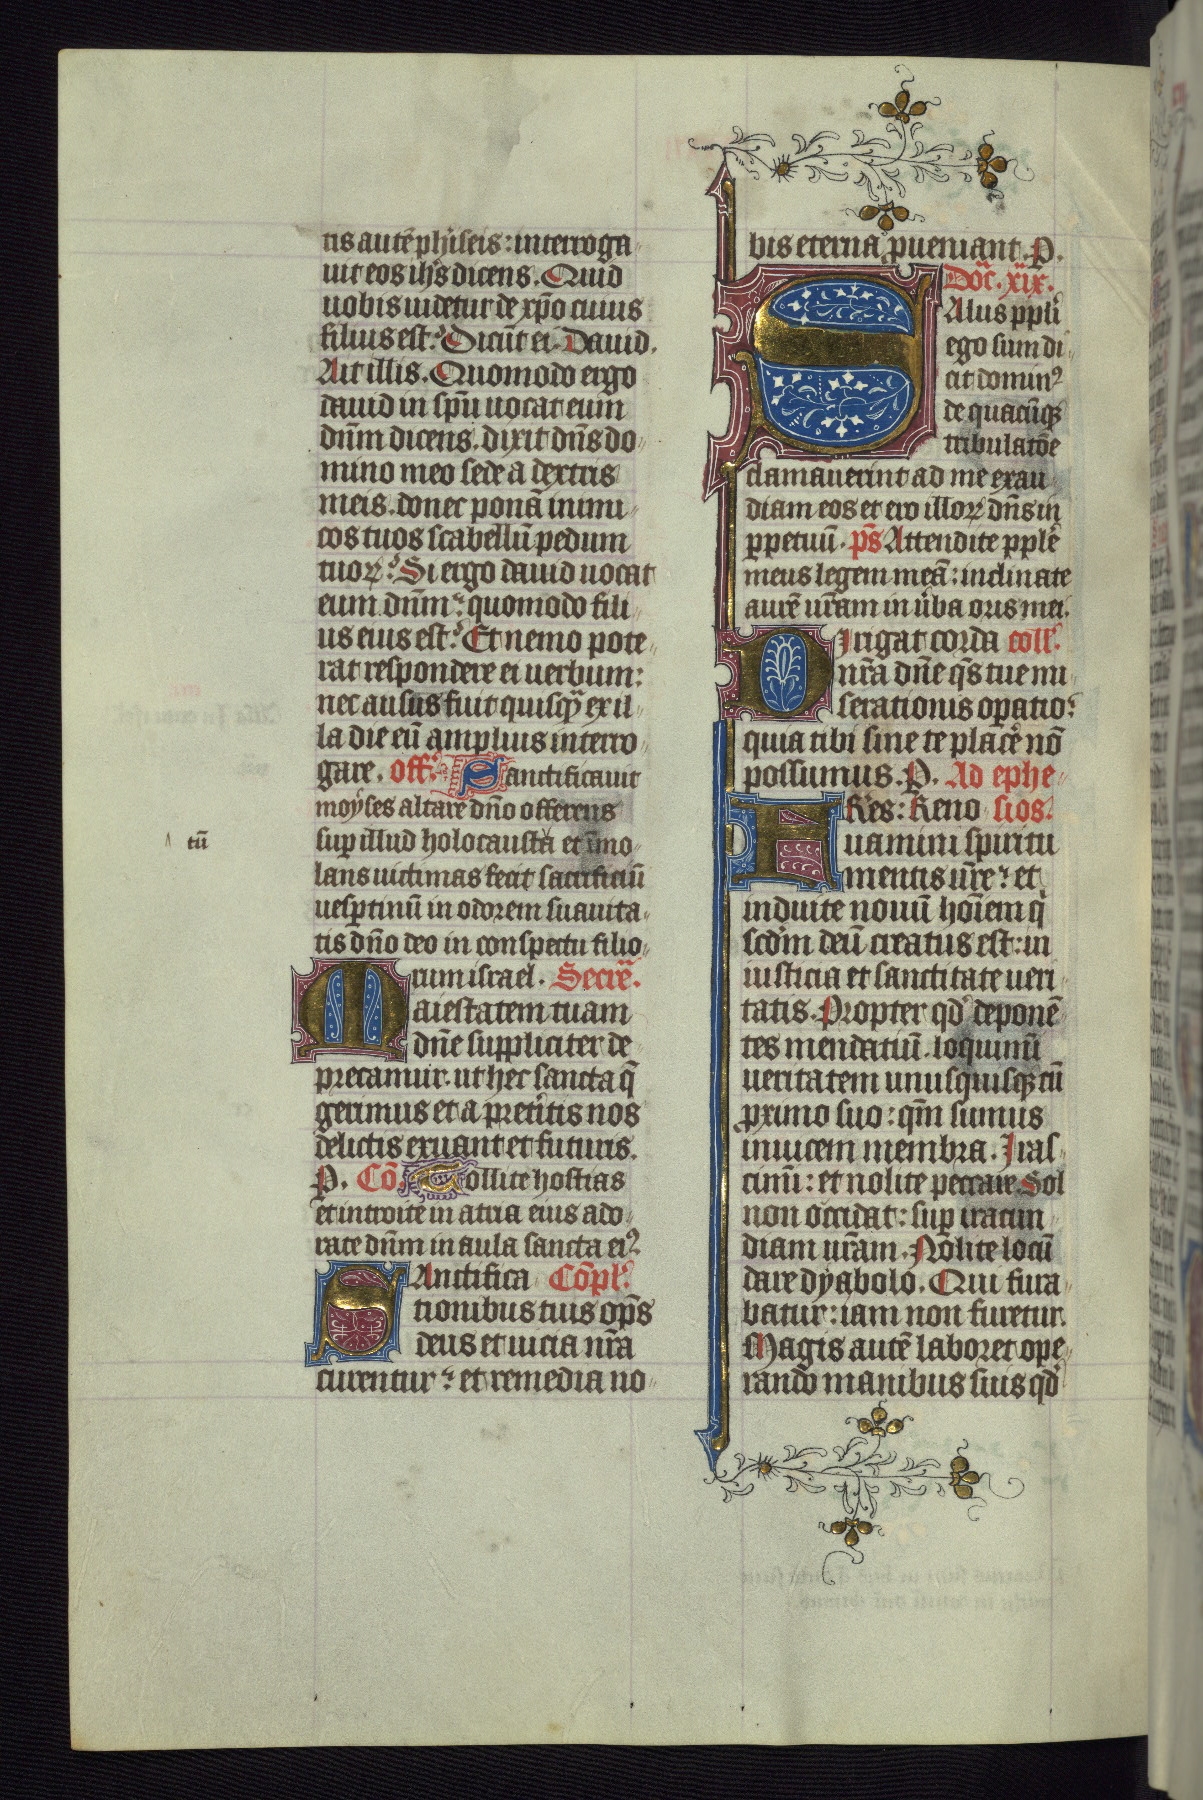 tis autē ph̄iseis: interroga
uit eos ih̄s dicens. Quid
uobis uidetur de xp̄o cuius
filius est? Dicūt ei. Dauid.
Ait illis. Quomodo ergo
dauid in sp̄u uocat eum
dn̄m dicens. dixit dn̄s do
mino meo sede a dextris
meis. donec ponā inimi
cos tuos scabellū pedum
tuoꝝ? Si ergo dauid uocat
eum dn̄m: quomodo fili
us eius est? Et nemo pote
rat respondere ei uerbum:
nec ausus fuit quisqȝ ex il
la die eū amplius interro
gare. off. Sanctificauit
moyses altare dn̄o offerens
sup̄ illud holocausta et īmo
tū
lans uictimas fecit sacrificiū
uesp̄tinū in odorem suauita
tis dn̄o deo in conspectu filio
rum israel. Secrē.
Maiestatem tuam
dn̄e suppliciter de
precamur. ut hec sancta q̄
gerimus et a pretitis nos
delictis exuant et futuris.
P. Cō. Tollite hostias
et introite in atria eius ado
rate dn̄m in aula sancta eiꝰ
SAnctifica Cōpl.
tionibus tuis op̄s
deus et uicia nr̄a
curentur: et remedia no
bis eterna ꝓueniant. P.
Dōc. xix.
SAlus ppl̄i
ego sum di
cit dominꝰ
de quacūqȝ
tribulatōe
clamauerint ad me exau
diam eos et ero illoꝝ dn̄s in
ꝑpetuū. ps̄ Attendite pple
meus legem meā: inclinate
aurē ur̄am in uba oris mei.
DIrigat corda coll.
nr̄a dn̄e qs̄ tue mi
serationis oꝑatio:
quia tibi sine te placē nō
possumus. P. Ad ephe
FRēs: Reno sios.
uamini spiritu
mentis ur̄e: et
induite nouū hoīem q
scdm̄ deū creatus est: in
iusticia et sanctitate ueri
tatis. Propter qd deponē
tes mendatiū. loquimī
ueritatem unusquisqȝ cū
ꝓximo suo: qm̄ sumus
inuicem membra. Iras
cimī: et nolite peccare Sol
non occidat: sup̄ iracun
diam ur̄am. Nolite locū
dare dyabolo. Qui fura
batur: iam non furetur.
Magis autē laboret ope
rando manibus suis qd